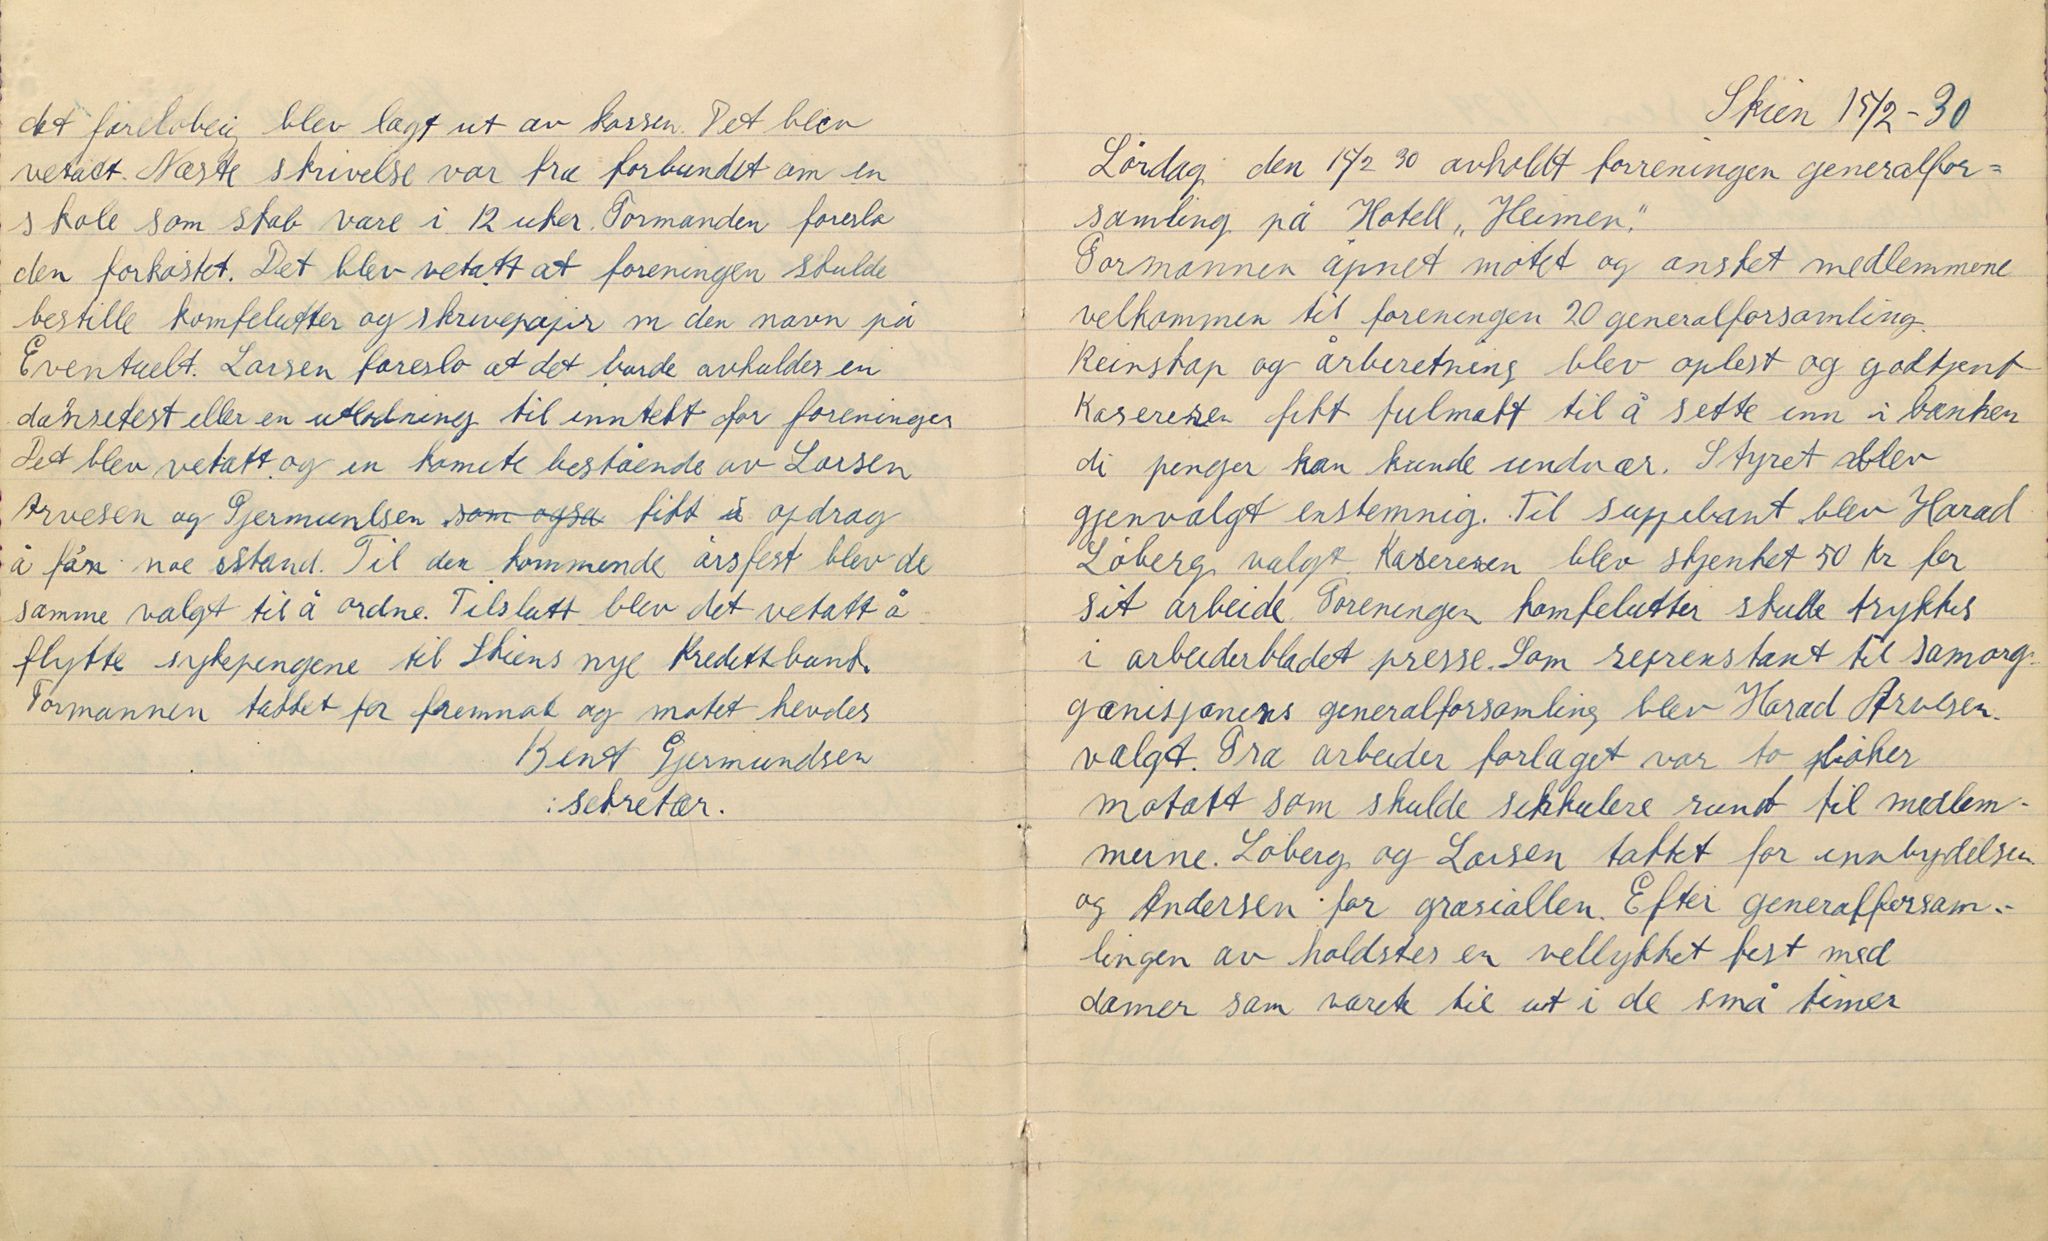 det foreløbeig blev lagt ut av kassen. Det blev
vetatt. Næste skrivelse var fra forbundet om en
skole som skab vare i 12 uker. Formanden foreslo
den forkastet. Det blev vetatt at foreningen skulde
bestille komfelutter og skrivepapir m den navn på
Eventuelt. Larsen foreslo at det burde avholdes en
dansefest eller en utlodning til inntekt for foreningen
Det blev vetatt og en komite bestående av Larsen
Arvesen og Gjermundsen som også fikk i opdrag
å få noe istand. Til den kommende årsfest blev de
samme valgt til å ordne. Tilslutt blev det vetatt å
flytte sykepengene til Skiens nye Kredittbank.
Formannen takket for fremmøt og møtet hevdes
Bent Gjermundsen
: sekretær.
Skien 15/2-30
Lördag den 15/2 30 avholdt forreningen generalfor=
samling på Hotell „Heimen".
Formannen åpnet møtet og ønsket medlemmene
velkommen til foreningen 20 generalforsamling.
Reinskap og årberetning blev oplest og godkjent
Kaserersen fikk fulmakt til å sette inn i banken
di penger kan kunde undvær. Styret blev
gjenvalgt enstemnig. Til suppelant blev Harad
Löberg valgt. Kasereren blev skjenket 50 kr for
sit arbeide. Foreningen komfelutter skulle trykkes
i arbeiderbladet presse. Som reprenstant til samorg-
ganisjonens generalforsamling blev Harad Arvesen.
valgt. Fra arbeider forlaget var to bøker
motatt som skulde sirkulere rundt til medlem-
merne. Løberg og Larsen takket for innbydelsen
og Andersen for grasiallen. Efter generalforsam.-
lingen av holdstes en vellykket fest med
damer som varete til ut i de små timer